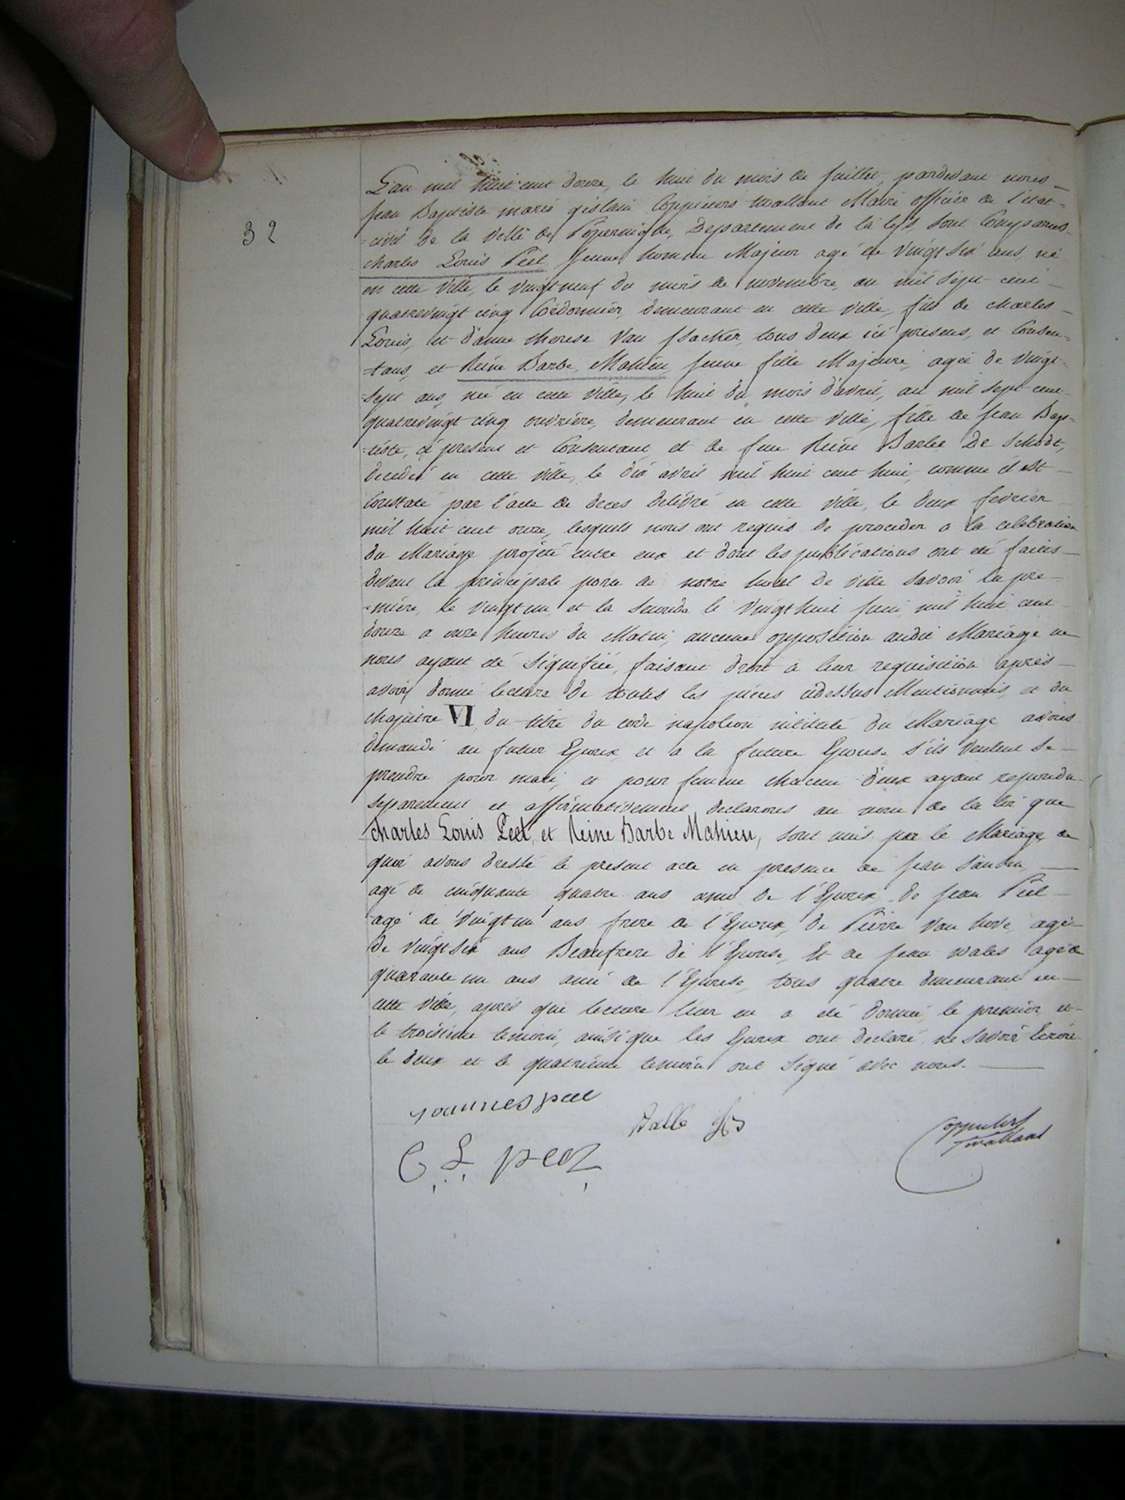 32
L'an mil huit cent douze, le huit du mois de juillet, pardevant nous
Jean Baptiste marie gislain Coppieters Wallant Maire officier de l'état
civil de la ville de Poperinghe, Departement de la Lys sont Comparus
charles Louis Peel jeune homme Majeur agé de vingt six ans, né
en cette ville, le vingt neuf du mois de novembre, an mil sept cent
quatrevingt cinq Cordonnier, demeurant en cette ville, fils de charles
Louis, et d'anne therese Van tous deux ici presens, et Consen-
tans, et Reine Barbe Mahieu, jeune fille Majeure, agée de vingt
sept ans, née en cette ville, le huit du mois d'avril, an mil sept cent
quatrevingt cinq ouvrière, demeurant en cette ville, fille de Jean Bap-
tiste, ci present et Consentant, et de feue Reine Barbe De Schodt,
decedée en cette ville, le dix avril mil huit cent huit, comme il est
Constaté par l'acte de deces delivré en cette ville, le deux fevrier
mil huit cent onze, lesquels nous ont requis de proceder a la celebration
du Mariage projeté entre eux et dont les publications ont été faites
devant la principale porte de notre hotel de ville savoir la pre-
mière, le vingt un et la seconde le vingt huit juin mil huit cent
douze a onze heures du Matin, aucune opposition audit Mariage ne
nous ayant été signifiée, faisant droit a leur requisition après
avoir donné lecture de toutes les pièces cidessus Mentionnées, et du
chapitre VI du titre du code napoleon intitulé du Mariage avons
demandé au futur Epoux et a la future Epouse s'ils veulent se
prendre pour mari, et pour femme chacun d'eux ayant repondu
separement et affirmativement declarons au nom de la loi que
charles Louis Peel, et Reine Barbe Mahieu, sont unis par le Mariage, de
quoi avons dressé le present acte en presence de Jean
agé de cinquante quatre ans ami de l'Epoux de Jean Peel
agé de vingt un ans frere de l'Epoux, de Pierre Van hove, agé
de vingt six ans Beaufrere de l'Epouse, Et de Jean agé de
quarante un ans ami de l'Epouse, tous quatre demeurant en
cette ville, après que lecture leur en a été donnée le premier et
le troisième temoin, ainsi que les Epoux ont declaré ne savoir Ecrire
le deux et le quatrième temoin ont signé avec nous.
Joannes peel
C L peel
Coppieters
Wallant